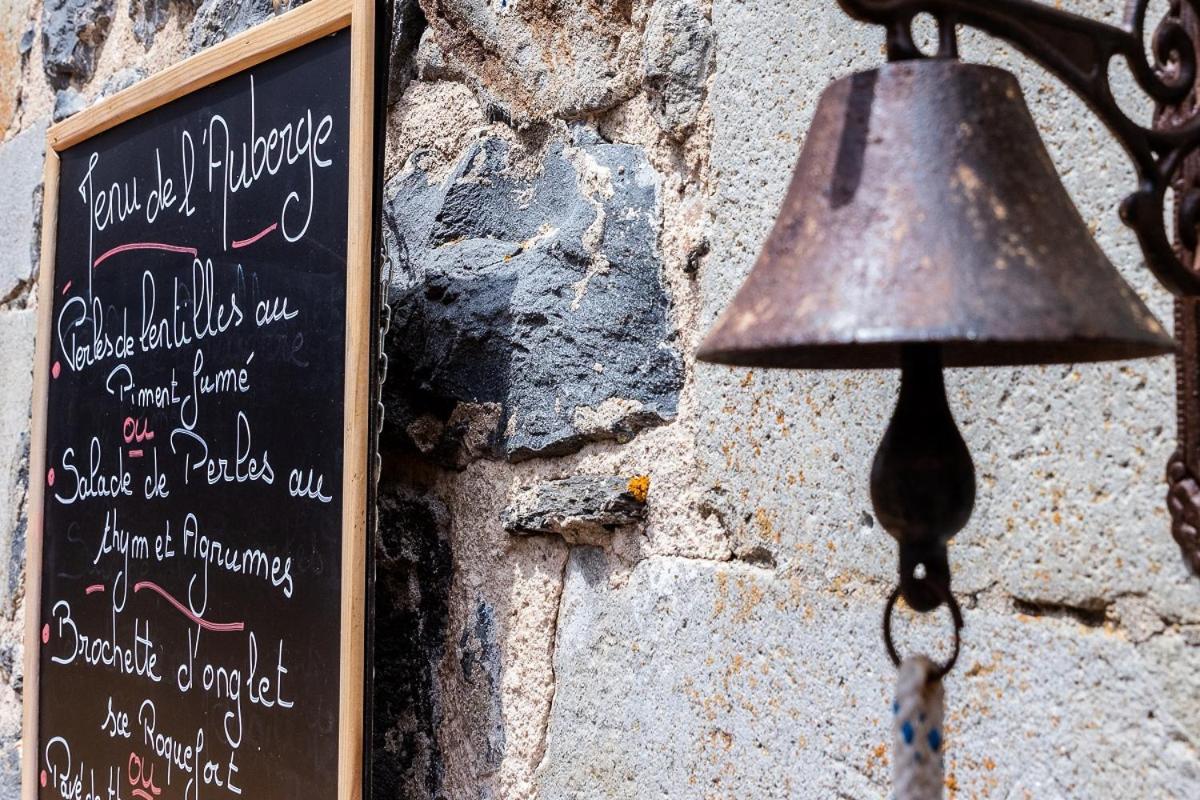 Menu de l'Auberge
Perles de lentilles au
Piment fumé
ou
Salade de Perles au
thym et Agrumes
Brochette d'onglet
sce Roquefort
ou
Pavé de th